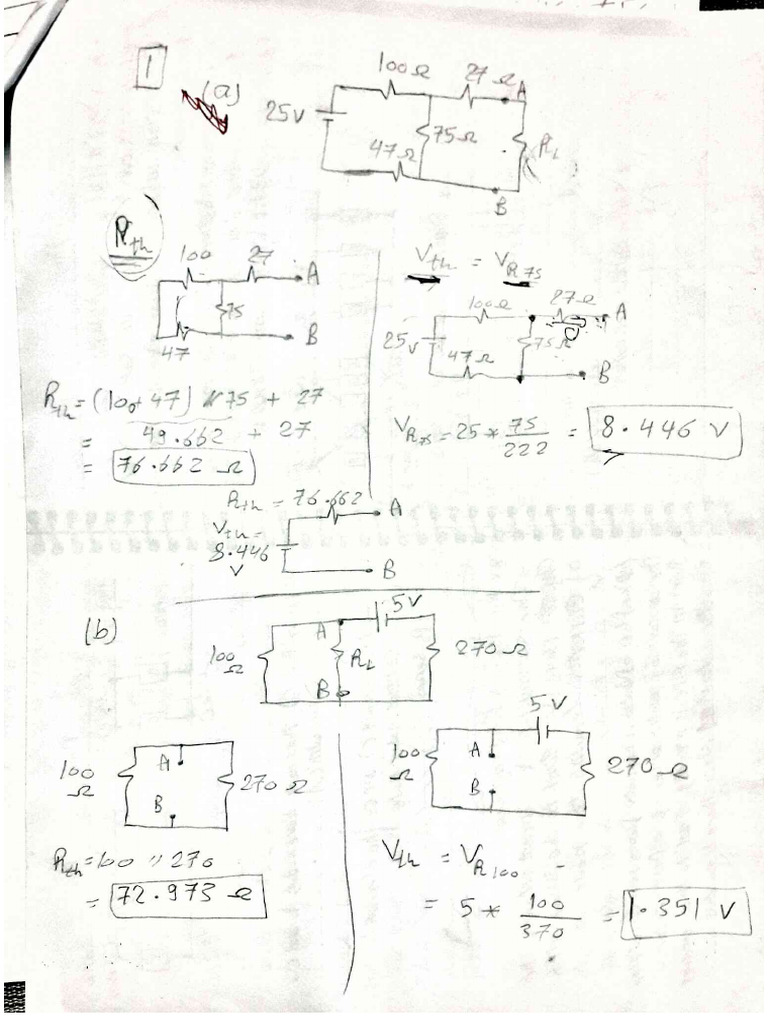 1
(a)
100Ω 27Ω A
25V 75Ω RL
47Ω
B
Rth
100 27 A
75
47 B
Rth = (100+47) // 75 + 27
= 49.662 + 27
= 76.662 Ω
Vth = VR75
100Ω 27Ω A
25V 75Ω
47Ω B
VR75 = 25 * 75/222 = 8.446 V
Rth = 76.662 A
Vth =
8.446
V B
(b)
5V
A
100Ω RL 270Ω
B
100Ω A 270Ω
B
Rth = 100 // 270
= 72.973 Ω
5V
100Ω A 270Ω
B
Vth = VR100
= 5 * 100/370 = 1.351 V